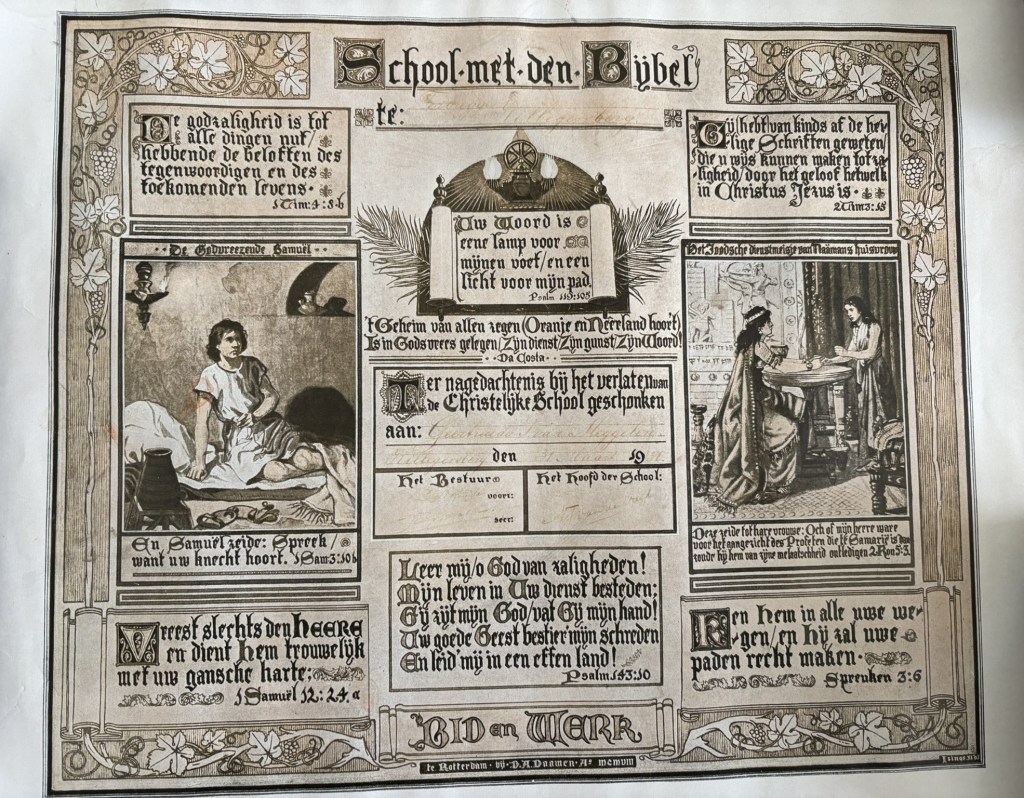 School·met·den·Bijbel
te:
De godzaligheid is tot
alle dingen nut/
hebbende de beloften des
tegenwoordigen en des
toekomenden levens·
1 Tim: 4:8·b
Gij hebt van kinds af de hei-
lige Schriften geweten/
die u wijs kunnen maken tot za-
ligheid/door het geloof hetwelk
in Christus Jezus is·
2 Tim 3:15
Uw Woord is
eene lamp voor
mijnen voet/en een
licht voor mijn pad.
Psalm 119:105
De Godvreezende Samuël
Het Joodsche dienstmeisje van Naämans huisvrouw
't Geheim van allen zegen (Oranje en Neerland hoort!)
Is in Gods vrees gelegen/Zijn dienst/Zijn gunst/Zijn Woord!
Da Costa
Ter nagedachtenis bij het verlaten van
de Christelijke School geschonken
aan:
den 19
Het Bestuur
voorz:
secr:
Het Hoofd der School:
En Samuël zeide: Spreek/
want uw knecht hoort. 1 Sam 3:10 b
Deze zeide tot hare vrouwe: Och of mijn heere ware
voor het aangezicht des Profeten die te Samarië is dan
zoude hij hem van zijne melaatschheid ontledigen 2 Kon 5:3.
Leer mij/o God van zaligheden!
Mijn leven in Uw dienst besteden;
Gij zijt mijn God/vat Gij mijn hand!
Uw goede Geest bestier mijn schreden
En leid mij in een effen land!
Psalm 143:10
Vreest slechts den HEERE
en dient Hem trouwelijk
met uw gansche harte;
1 Samuël 12:24·a
Ken Hem in alle uwe we-
gen/en hij zal uwe
paden recht maken·
Spreuken 3:6
BID en WERK
te Rotterdam·bij·D.A.Daamen·Aº MCMVIII